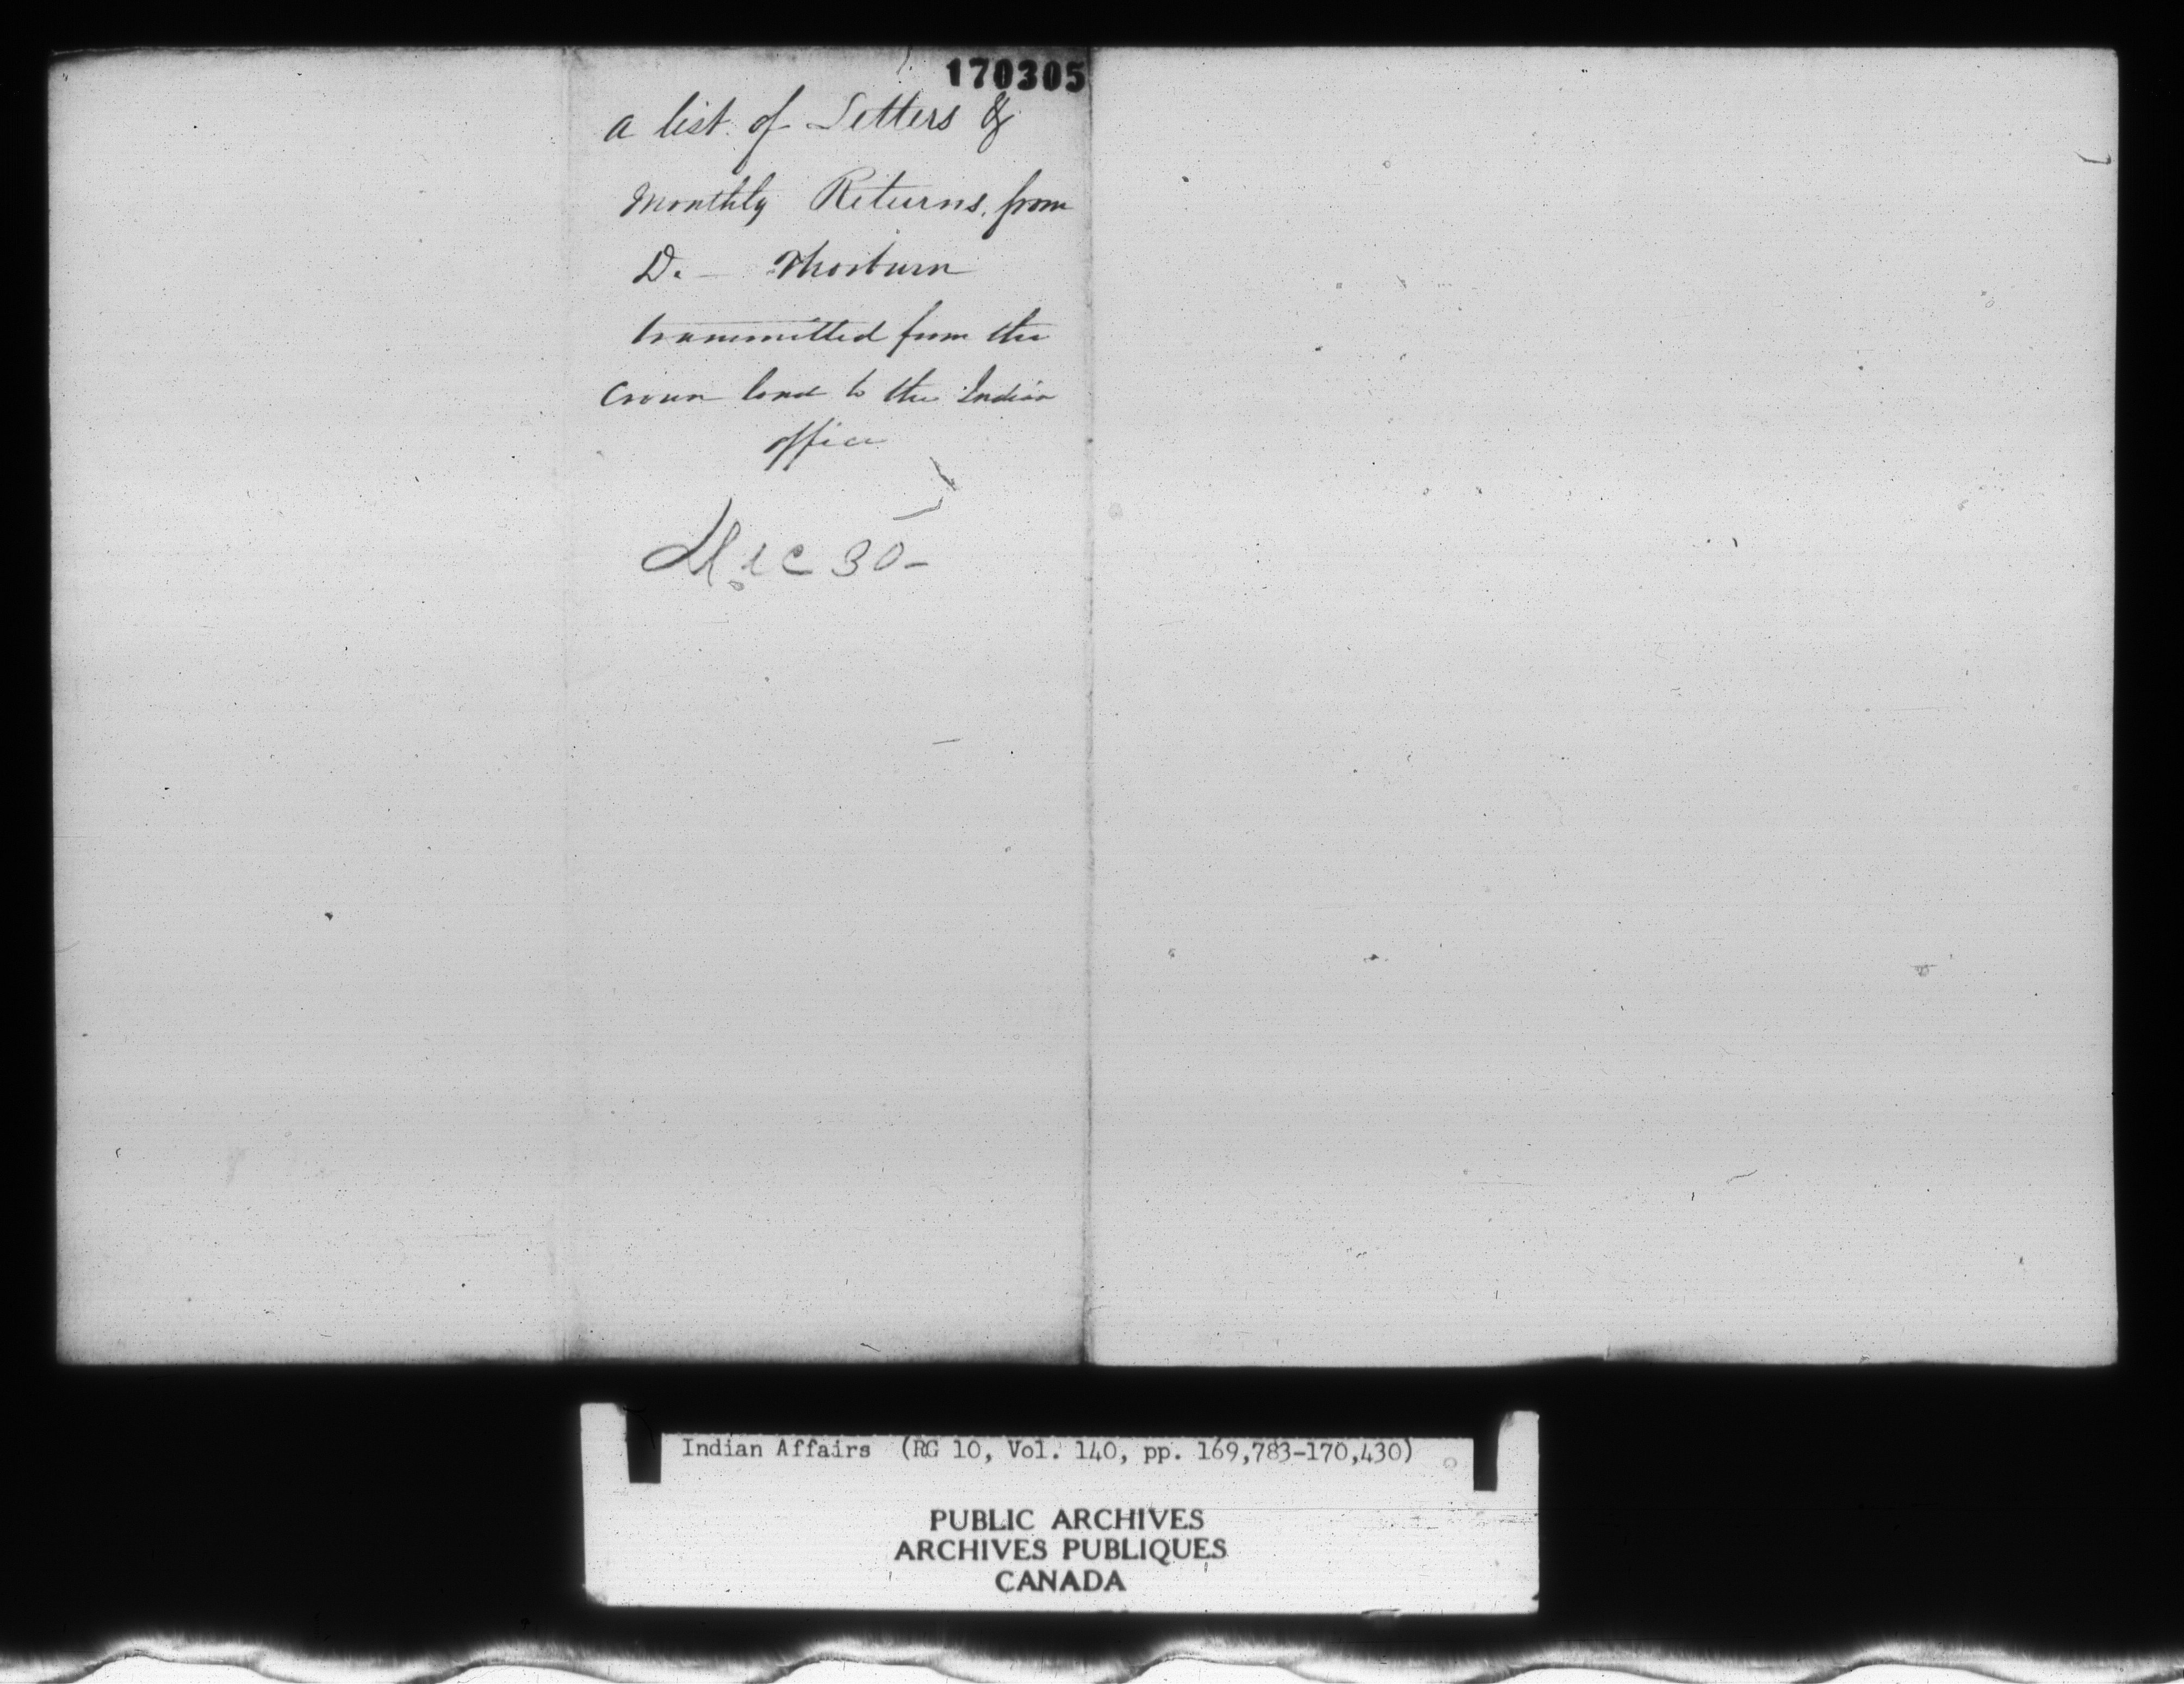 170305
a list of Letters &
Monthly Returns, from
D. - Thorburn
transmitted from the
Crown land to the Indian
office
Dec 30-
Indian Affairs (RG 10, Vol. 140, pp. 169,783-170,430)
PUBLIC ARCHIVES
ARCHIVES PUBLIQUES
CANADA